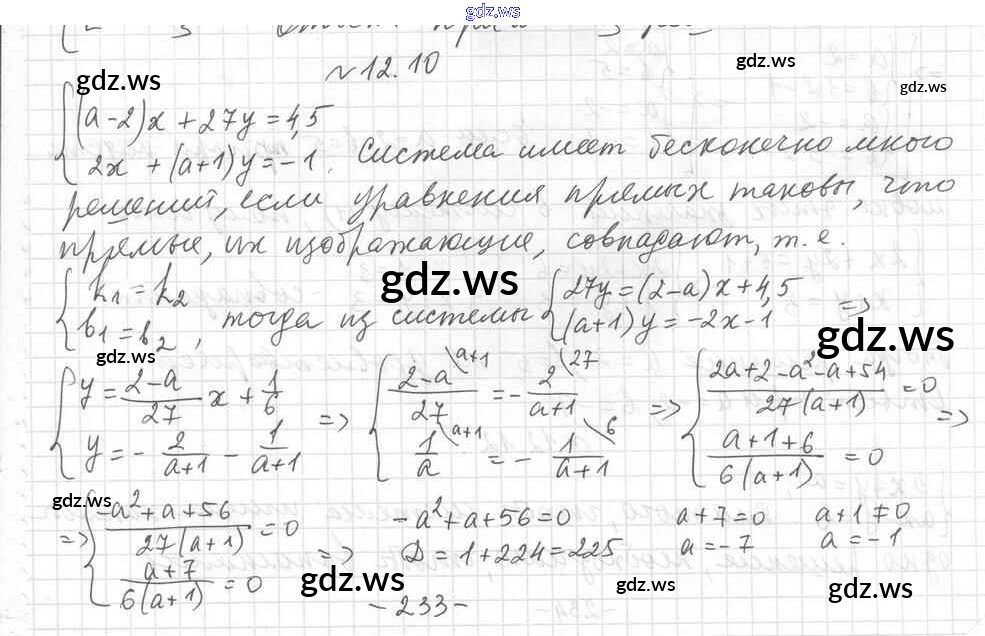 gdz.ws
№12.10
gdz.ws gdz.ws gdz.ws
{(a-2)x+27y=4,5
2x+(a+1)y=-1. Система имеет бесконечно много
решений, если уравнения прямых таковы, что
прямые, их изображающие, совпадают, т.е.
gdz.ws
{k₁=k₂
b₁=b₂, тогда из системы {27y=(2-a)x+4,5
(a+1)y=-2x-1 =>
gdz.ws gdz.ws
{y=\frac{2-a}{27}x+\frac{1}{6}
y=-\frac{2}{a+1}-\frac{1}{a+1} => {\frac{2-a}{27}^{\a+1}=-\frac{2}{a+1}^{\27}
\frac{1}{a}^{\a+1}=-\frac{1}{a+1}^{\6} => {\frac{2a+2-a²-a+54}{27(a+1)}=0
\frac{a+1+6}{6(a+1)}=0 =>
gdz.ws
=> {\frac{-a²+a+56}{27(a+1)}=0
\frac{a+7}{6(a+1)}=0 => -a²+a+56=0 a+7=0 a+1≠0
D=1+224=225 a=-7 a=-1
gdz.ws gdz.ws gdz.ws
-233-